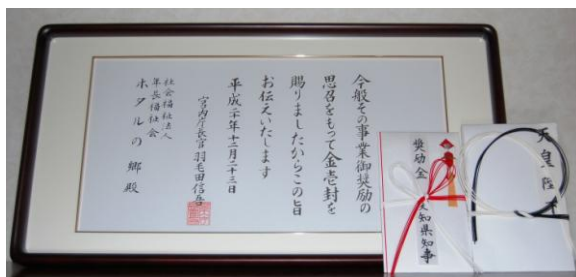 今般その事業御奨励の
思召をもって金壱封を
賜りましたからこの旨
お伝えいたします
平成二十年十二月二十三日
宮内庁長官 羽毛田信吾
社会福祉法人
年長福祉会
ホタルの郷 殿
奨励金
知県知事
天皇陛下